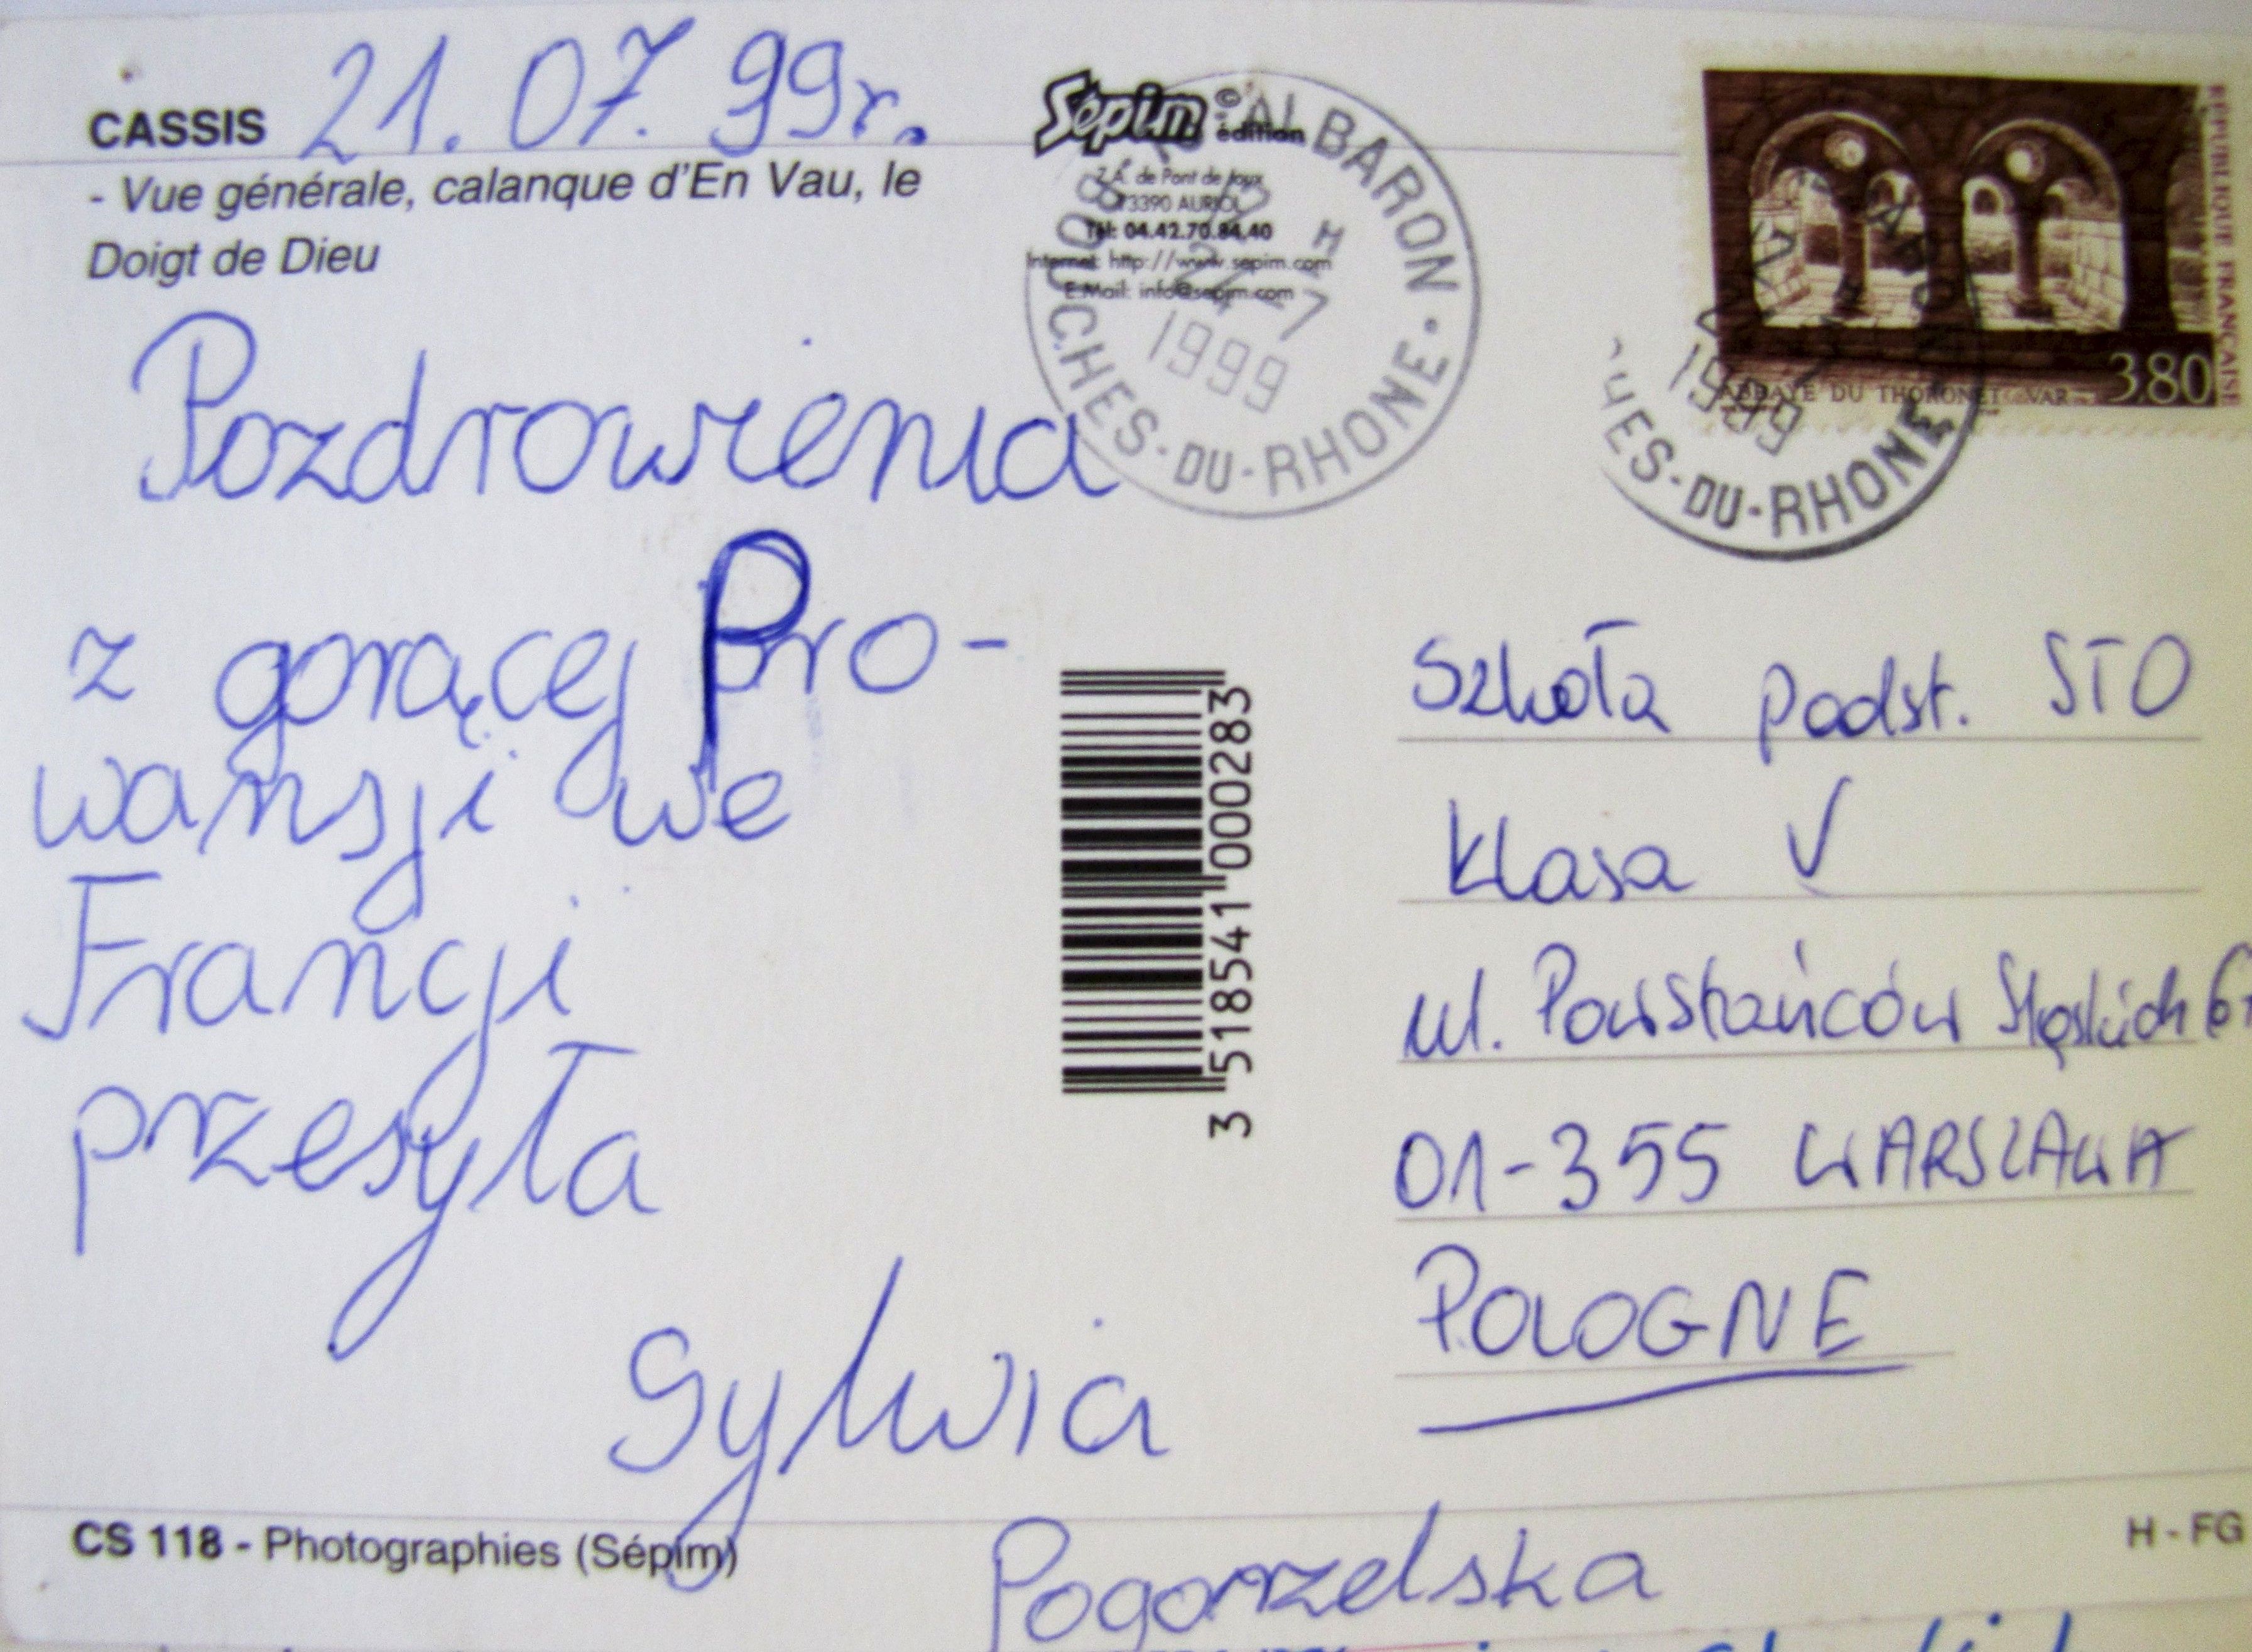 CASSIS 21.07.99r.
- Vue générale, calanque d'En Vau, le
Doigt de Dieu
Sépim © édition
Z.A. de Pont de Joux
13390 AURIOL
Tél: 04.42.70.84.40
Internet: http://www.sepim.com
E.Mail: info@sepim.com
ALBARON
BOUCHES-DU-RHONE
H
1999
RÉPUBLIQUE FRANÇAISE
3,80
ABBAYE DU THORONET VAR
1999
HES-DU-RHONE
Pozdrowienia
z gorącej Pro-
wansji we
Francji
przesyła
Sylwia
Pogorzelska
3 518541 000283
Szkoła podst. STO
Klasa V
ul. Powstańców Śląskich
01-355 WARSZAWA
POLOGNE
CS 118 - Photographies (Sépim)
H - FG